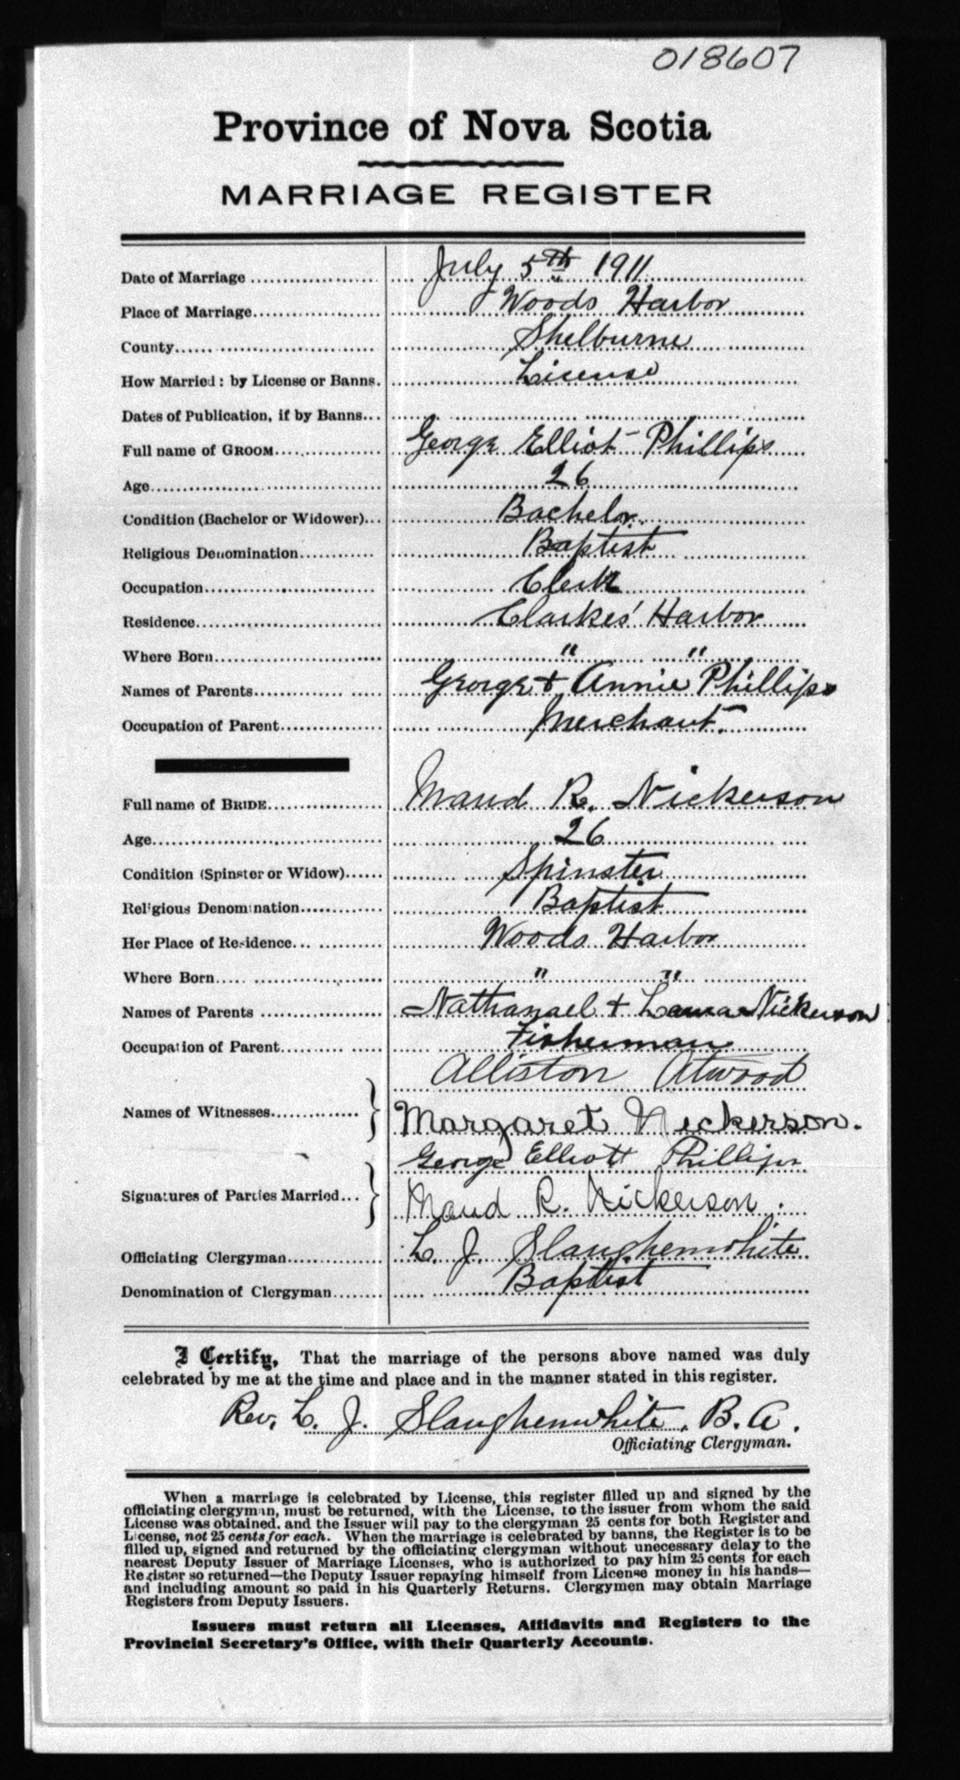 018607
Province of Nova Scotia
MARRIAGE REGISTER
Date of Marriage July 5th 1911
Place of Marriage Woods Harbor
County Shelburne
How Married: by License or Banns. License
Dates of Publication, if by Banns
Full name of GROOM George Elliot Phillips
Age 26
Condition (Bachelor or Widower) Bachelor
Religious Denomination Baptist
Occupation Clerk
Residence Clarkes' Harbor
Where Born " "
Names of Parents George + Annie Phillips
Occupation of Parent Merchant.
Full name of BRIDE Maud R. Nickerson
Age 26
Condition (Spinster or Widow) Spinster
Religious Denomination Baptist
Her Place of Residence Woods Harbor
Where Born " "
Names of Parents Nathanael + Laura Nickerson
Occupation of Parent Fisherman
Alliston Atwood
Names of Witnesses
Margaret Nickerson.
George Elliott Phillips
Signatures of Parties Married
Maud R. Nickerson.
Officiating Clergyman L. J. Slaughenwhite
Denomination of Clergyman Baptist
I Certify, That the marriage of the persons above named was duly
celebrated by me at the time and place and in the manner stated in this register.
Rev. L. J. Slaughenwhite, B.A.
Officiating Clergyman.
When a marriage is celebrated by License, this register filled up and signed by the
officiating clergyman, must be returned, with the License, to the issuer from whom the said
License was obtained, and the Issuer will pay to the clergyman 25 cents for both Register and
License, not 25 cents for each. When the marriage is celebrated by banns, the Register is to be
filled up, signed and returned by the officiating clergyman without unecessary delay to the
nearest Deputy Issuer of Marriage Licenses, who is authorized to pay him 25 cents for each
Register so returned—the Deputy Issuer repaying himself from License money in his hands—
and including amount so paid in his Quarterly Returns. Clergymen may obtain Marriage
Registers from Deputy Issuers.
Issuers must return all Licenses, Affidavits and Registers to the
Provincial Secretary's Office, with their Quarterly Accounts.